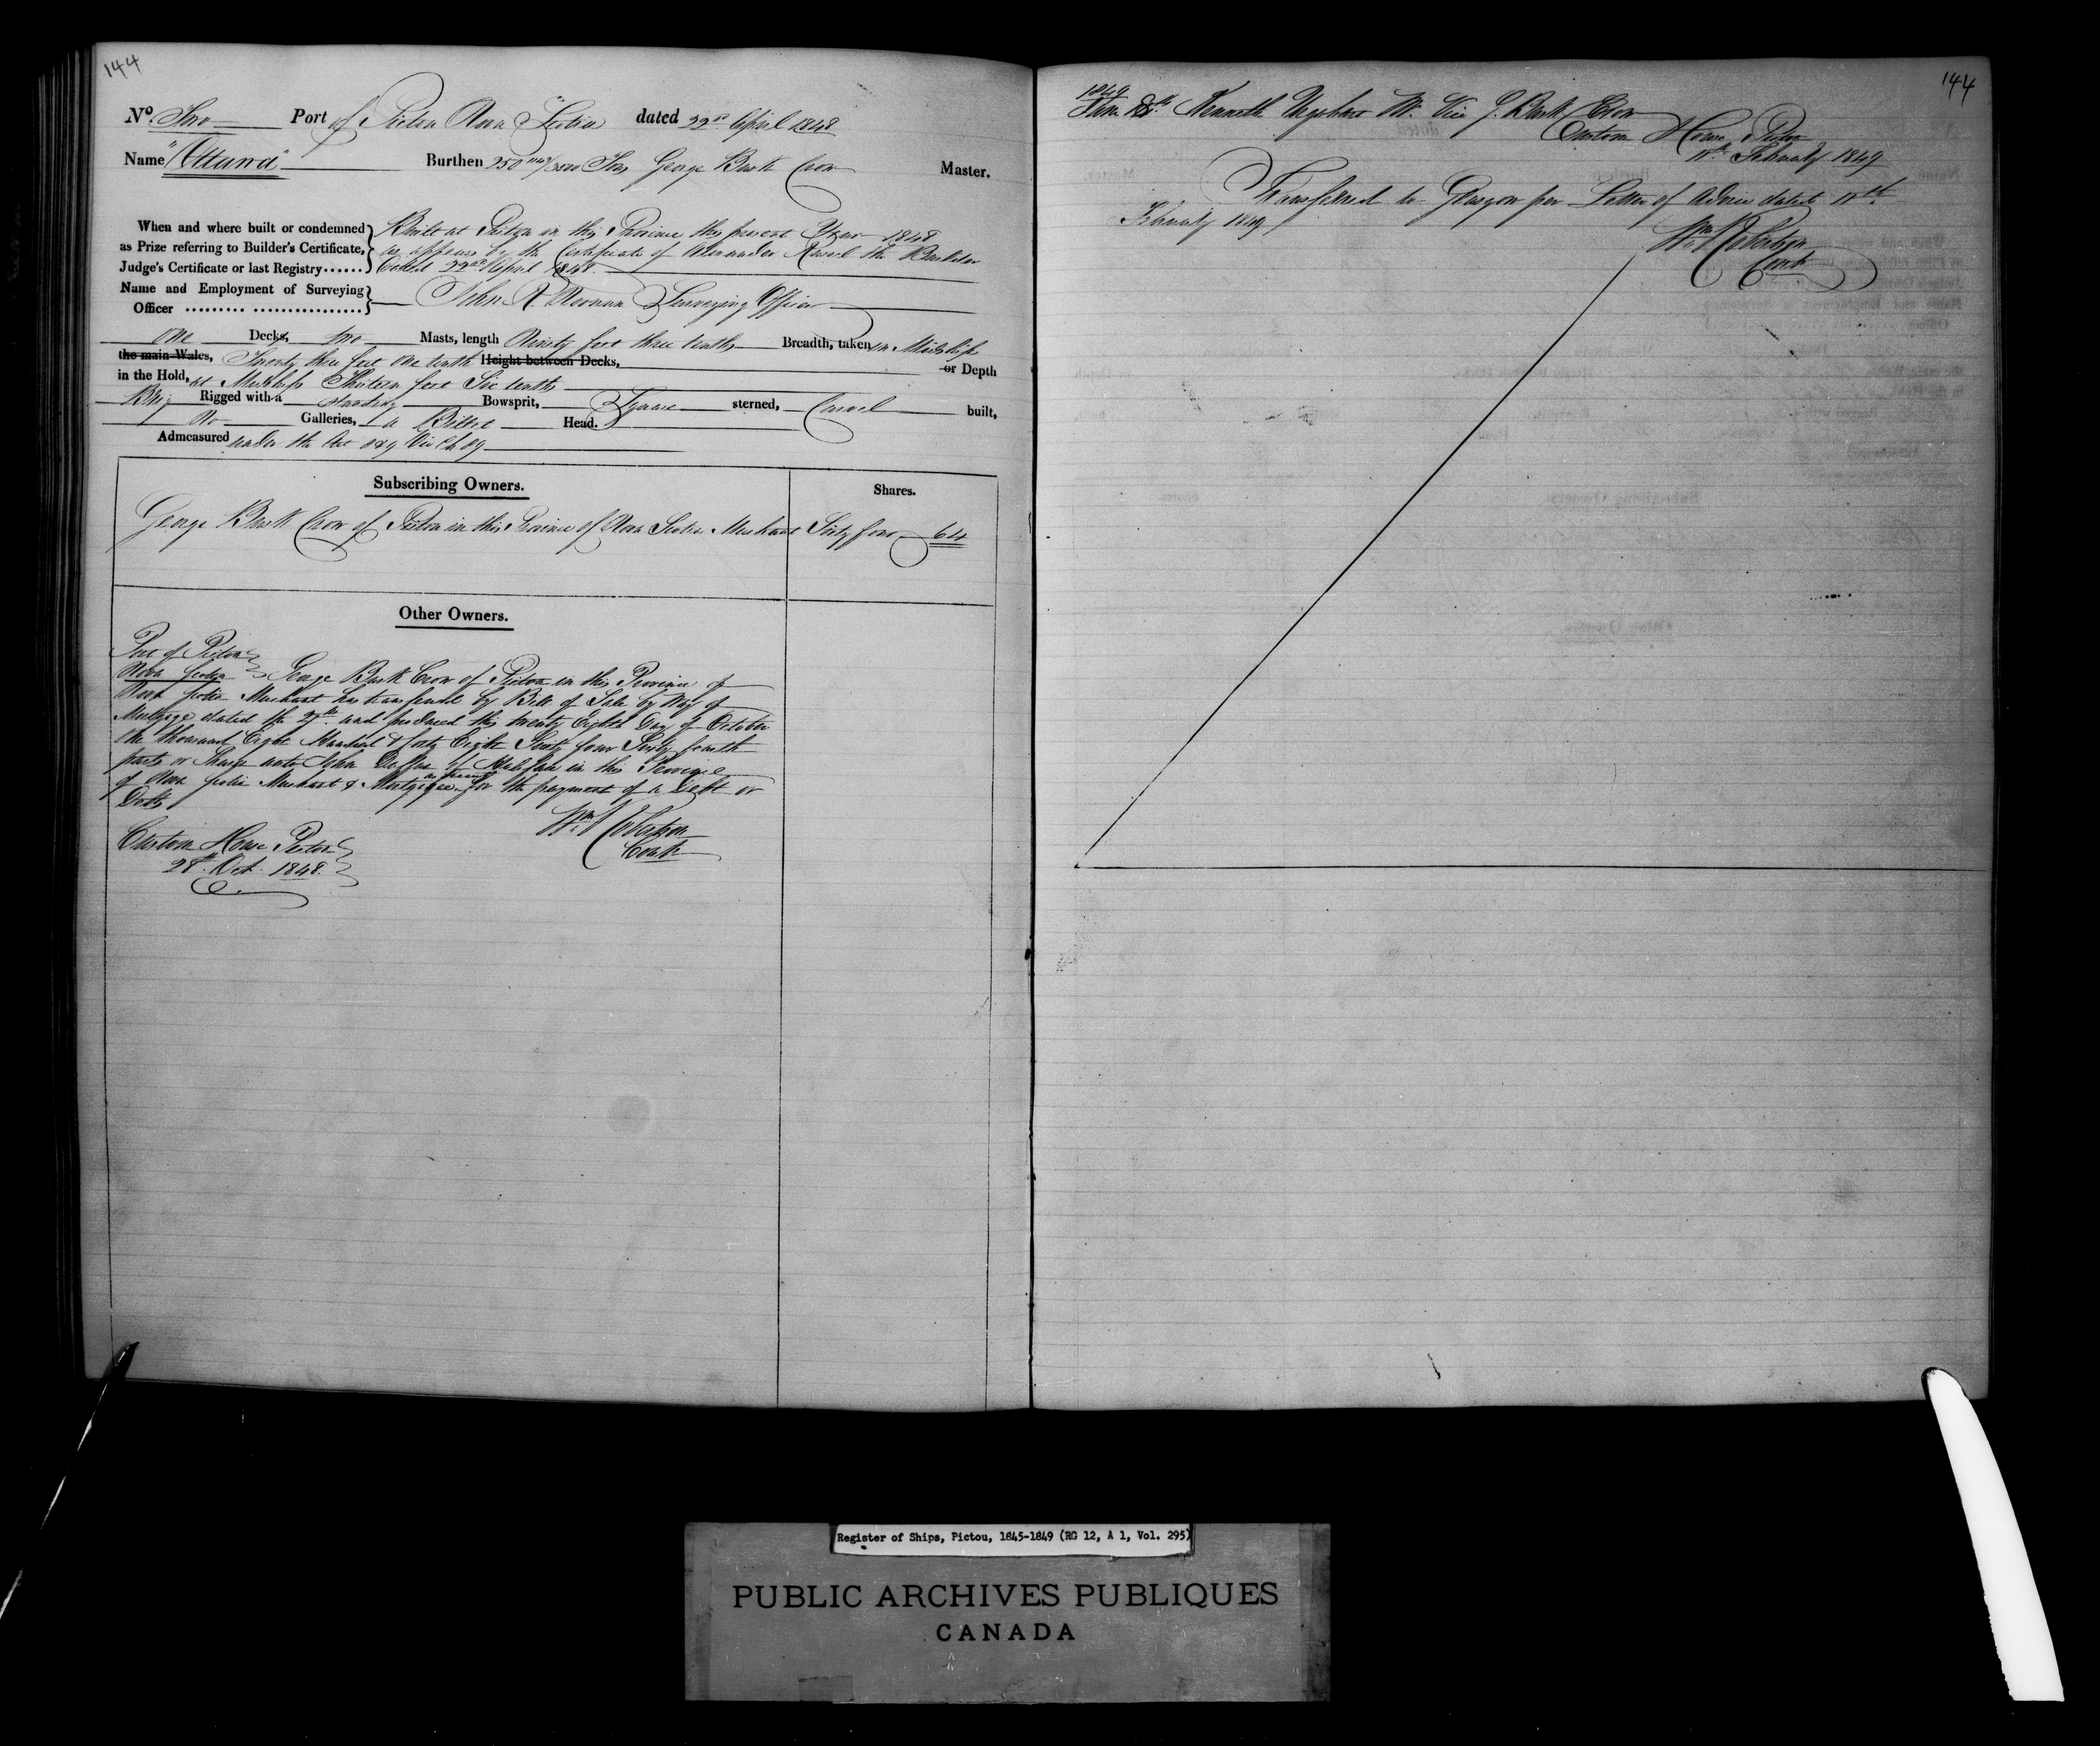 144
No. Two Port of Pictou Nova Scotia dated 22nd April 1848
Name "Ottawa" Burthen 250 /3500 Tons George Burk Crow Master.
When and where built or condemned
as Prize referring to Builder's Certificate,
Judge's Certificate or last Registry......
Built at Pictou in this Province this present Year 1848
as appears by the Certificate of Alexander the Builder
dated 22nd April 1848.
Name and Employment of Surveying
Officer ......... ................
John R. Noonan Surveying Officer
One Decks, two Masts, length Ninety feet three tenths Breadth, taken in Midship
the main Wales, Twenty three feet One tenth Height between Decks, or Depth
in the Hold, at Midships Thirteen feet Six tenths
Brig Rigged with a standing Bowsprit, Square sterned, Carvel built,
No Galleries, a Billet Head.
Admeasured under the Act 8 & 9 Vic Ch 89
Subscribing Owners. Shares.
George Burk Crow of Pictou in this Province of Nova Scotia Merchant Sixty four 64
Other Owners.
Port of Pictou
Nova Scotia George Burk Crow of Pictou in this Province of
Nova Scotia Merchant has transferred by Bill of Sale by Way of
Mortgage dated the 27th and produced this twenty Eighth Day of October
One thousand Eight Hundred & forty Eight Sixty four Sixty fourth
parts or Shares unto John Of Halifax in this Province
of Nova Scotia Merchant & Mortgagee for the payment of a Debt or
Debts
Wm Robertson
Contr
Custom House Pictou
28th Oct. 1848.
144
1849
Kenneth Urquhart Mr. Vice G. Burk Crow
Custom House Pictou
February 1849
Transferred to Glasgow per Letter of Advice dated
February 1849
Wm Robertson
Contr
Register of Ships, Pictou, 1845-1849 (RG 12, A 1, Vol. 295)
PUBLIC ARCHIVES PUBLIQUES
CANADA